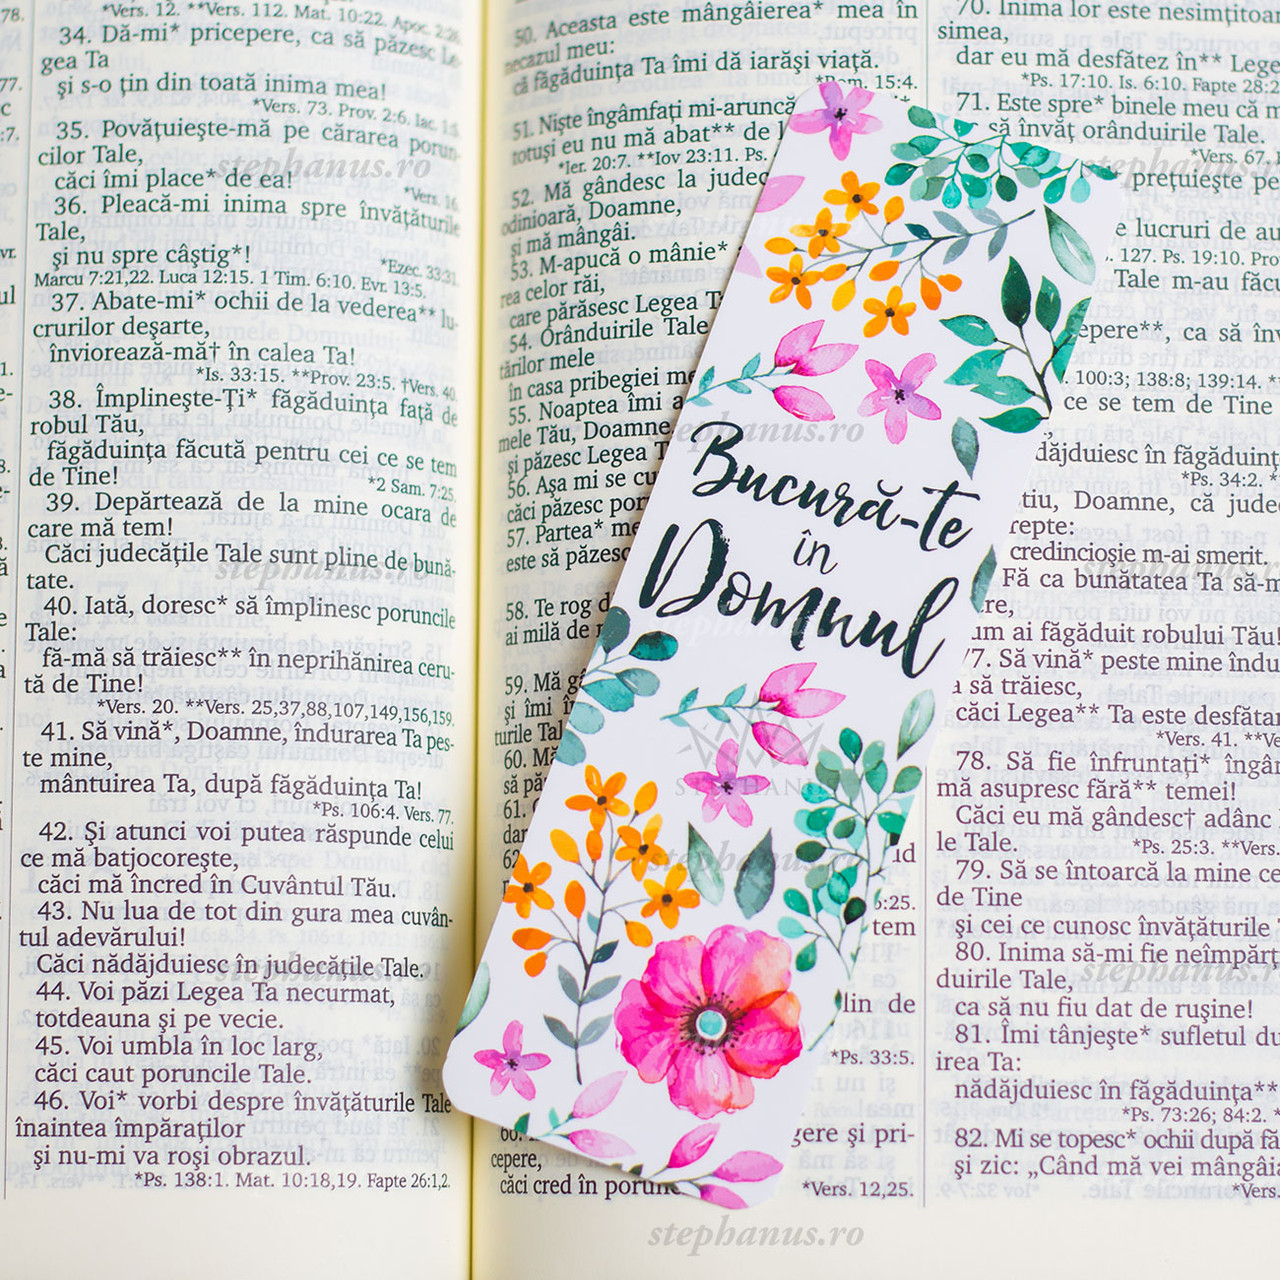 78.
*Vers. 12. **Vers. 112. Mat. 10:22. Apoc.
34. Dă-mi* pricepere, ca să păzesc
gea Ta
şi s-o ţin din toată inima mea!
*Vers. 73. Prov. 2:6. Iac. 1:5.
35. Povăţuieşte-mă pe cărarea porun-
cilor Tale,
căci îmi place* de ea!
*Vers. 16.
36. Pleacă-mi inima spre învăţăturile
Tale,
şi nu spre câştig*!
*Ezec. 33:31.
Marcu 7:21,22. Luca 12:15. 1 Tim. 6:10. Evr. 13:5.
37. Abate-mi* ochii de la vederea** lu-
crurilor deşarte,
înviorează-mă† în calea Ta!
*Is. 33:15. **Prov. 23:5. †Vers. 40.
38. Împlineşte-Ţi* făgăduinţa faţă de
robul Tău,
făgăduinţa făcută pentru cei ce se tem
de Tine!
*2 Sam. 7:25.
39. Depărtează de la mine ocara de
care mă tem!
Căci judecăţile Tale sunt pline de bună-
tate.
40. Iată, doresc* să împlinesc poruncile
Tale:
fă-mă să trăiesc** în neprihănirea ceru-
tă de Tine!
*Vers. 20. **Vers. 25,37,88,107,149,156,159.
41. Să vină*, Doamne, îndurarea Ta pes-
te mine,
mântuirea Ta, după făgăduinţa Ta!
*Ps. 106:4. Vers. 77.
42. Şi atunci voi putea răspunde celui
ce mă batjocoreşte,
căci mă încred în Cuvântul Tău.
43. Nu lua de tot din gura mea cuvân-
tul adevărului!
Căci nădăjduiesc în judecăţile Tale.
44. Voi păzi Legea Ta necurmat,
totdeauna şi pe vecie.
45. Voi umbla în loc larg,
căci caut poruncile Tale.
46. Voi* vorbi despre învăţăturile Tale
înaintea împăraţilor
şi nu-mi va roşi obrazul.
*Ps. 138:1. Mat. 10:18,19. Fapte 26:1,2.
50. Aceasta este mângâierea* mea în
necazul meu:
că făgăduinţa Ta îmi dă iarăşi viaţă.
*Rom. 15:4.
51. Nişte îngâmfaţi mi-aruncă
totuşi eu nu mă abat** de l
*Ier. 20:7. **Iov 23:11. Ps.
52. Mă gândesc la judec
odinioară, Doamne,
şi mă mângâi.
53. M-apucă o mânie*
rea celor răi,
care părăsesc Legea T
54. Orânduirile Tale
tărilor mele
în casa pribegiei me
55. Noaptea îmi a
mele Tău, Doamne,
şi păzesc Legea T
56. Aşa mi se cu
căci păzesc por
57. Partea* me
este să păzesc
58. Te rog d
ai milă de
59. Mă g
şi îmi î
turile Tal
60. Mă
să pă
61.
dar
62
6:25.
tem
lin de
*Ps. 33:5.
gere şi pri-
cepere,
căci cred în porunc
*Vers. 12,25.
Bucură-te
în
Domnul
STEPHANUS
70. Inima lor este nesimţitoar
simea,
dar eu mă desfătez în** Lege
*Ps. 17:10. Is. 6:10. Fapte 28:2
71. Este spre* binele meu că m
să învăţ orânduirile Tale.
*Vers. 67.
preţuieşte pe
e lucruri de au
127. Ps. 19:10. Pro
Tale m-au făcu
epere**, ca să înv
100:3; 138:8; 139:14.
ce se tem de Tine
dăjduiesc în făgăduinţ
*Ps. 34:2.
tiu, Doamne, că judec
repte:
credincioşie m-ai smerit.
Fă ca bunătatea Ta să-m
re,
um ai făgăduit robului Tău!
77. Să vină* peste mine îndu
să trăiesc,
căci Legea** Ta este desfătar
*Vers. 41. **Ve
78. Să fie înfruntaţi* îngâm
mă asupresc fără** temei!
Căci eu mă gândesc† adânc
le Tale.
*Ps. 25:3. **Vers.
79. Să se întoarcă la mine ce
de Tine
şi cei ce cunosc învăţăturile
80. Inima să-mi fie neîmpărţ
duirile Tale,
ca să nu fiu dat de ruşine!
81. Îmi tânjeşte* sufletul du
irea Ta:
nădăjduiesc în făgăduinţa**
*Ps. 73:26; 84:2.
82. Mi se topesc* ochii după fă
şi zic: „Când mă vei mângâia
*Vers.
stephanus.ro
stephanus.ro
stephanus.ro
stephanus.ro
stephanus.ro
stephanus.ro
stephanus.ro
stephanus.ro
stephanus.ro
stephanus.ro